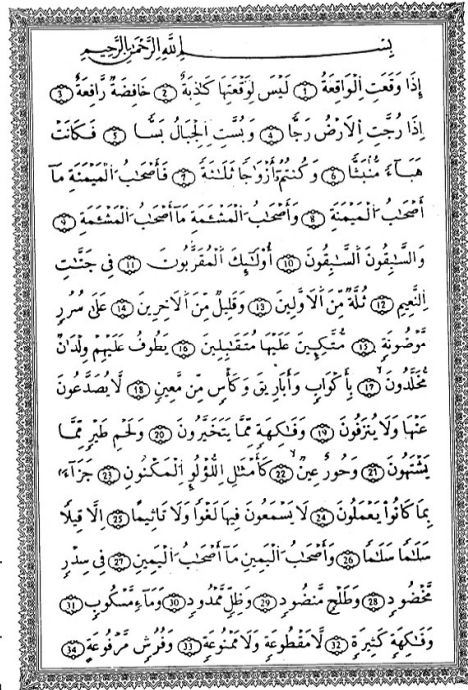 بِسْــــــمِ اللَّهِ الرَّحْمَٰنِ الرَّحِيمِ
إِذَا وَقَعَتِ الْوَاقِعَةُ 1 لَيْسَ لِوَقْعَتِهَا كَاذِبَةٌ 2 خَافِضَةٌ رَّافِعَةٌ 3
إِذَا رُجَّتِ الْأَرْضُ رَجًّا 4 وَبُسَّتِ الْجِبَالُ بَسًّا 5 فَكَانَتْ
هَبَآءً مُّنۢبَثًّا 6 وَكُنتُمْ أَزْوَاجًا ثَلَٰثَةً 7 فَأَصْحَٰبُ الْمَيْمَنَةِ مَآ
أَصْحَٰبُ الْمَيْمَنَةِ 8 وَأَصْحَٰبُ الْمَشْـَٔمَةِ مَآ أَصْحَٰبُ الْمَشْـَٔمَةِ 9
وَالسَّٰبِقُونَ السَّٰبِقُونَ 10 أُوْلَٰٓئِكَ الْمُقَرَّبُونَ 11 فِى جَنَّٰتِ
النَّعِيمِ 12 ثُلَّةٌ مِّنَ الْأَوَّلِينَ 13 وَقَلِيلٌ مِّنَ الْأَخِرِينَ 14 عَلَىٰ سُرُرٍ
مَّوْضُونَةٍ 15 مُّتَّكِـِٔينَ عَلَيْهَا مُتَقَٰبِلِينَ 16 يَطُوفُ عَلَيْهِمْ وِلْدَٰنٌ
مُّخَلَّدُونَ 17 بِأَكْوَابٍ وَأَبَارِيقَ وَكَأْسٍ مِّن مَّعِينٍ 18 لَّا يُصَدَّعُونَ
عَنْهَا وَلَا يُنزِفُونَ 19 وَفَٰكِهَةٍ مِّمَّا يَتَخَيَّرُونَ 20 وَلَحْمِ طَيْرٍ مِّمَّا
يَشْتَهُونَ 21 وَحُورٌ عِينٌ 22 كَأَمْثَٰلِ اللُّؤْلُوِٕ الْمَكْنُونِ 23 جَزَآءًۢ
بِمَا كَانُوا۟ يَعْمَلُونَ 24 لَا يَسْمَعُونَ فِيهَا لَغْوًا وَلَا تَأْثِيمًا 25 إِلَّا قِيلًا
سَلَٰمًا سَلَٰمًا 26 وَأَصْحَٰبُ الْيَمِينِ مَآ أَصْحَٰبُ الْيَمِينِ 27 فِى سِدْرٍ
مَّخْضُودٍ 28 وَطَلْحٍ مَّنضُودٍ 29 وَظِلٍّ مَّمْدُودٍ 30 وَمَآءٍ مَّسْكُوبٍ 31
وَفَٰكِهَةٍ كَثِيرَةٍ 32 لَّا مَقْطُوعَةٍ وَلَا مَمْنُوعَةٍ 33 وَفُرُشٍ مَّرْفُوعَةٍ 34